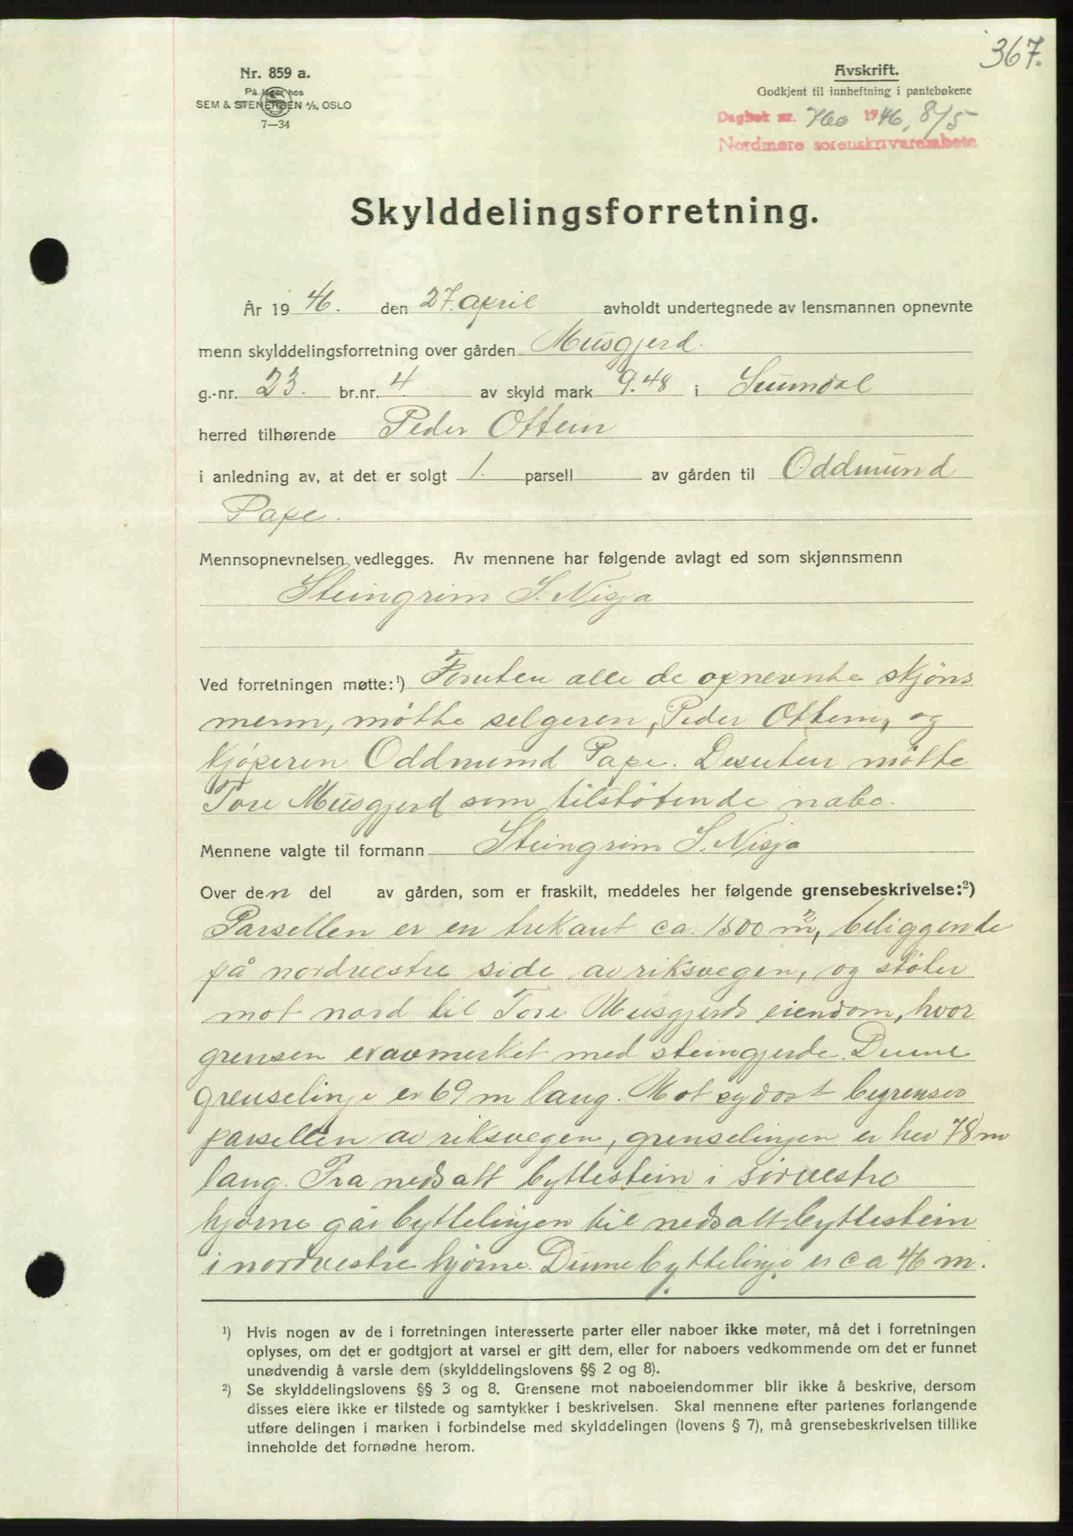 367.
Nr. 859 a.
På lager hos
SEM & STENERSEN A/S, OSLO
7—34
Avskrift.
Godkjent til innheftning i pantebøkene
Dagbok nr. 760 1946, 8/5
Nordmøre sorenskriverembete
Skylddelingsforretning.
År 1946. den 27. april avholdt undertegnede av lensmannen opnevnte
menn skylddelingsforretning over gården Musgjerd.
g.-nr. 23. br.nr. 4 av skyld mark 9.48 i Sunndal
herred tilhørende Peder Ottem
i anledning av, at det er solgt 1. parsell av gården til Oddmund
Pape.
Mennsopnevnelsen vedlegges. Av mennene har følgende avlagt ed som skjønnsmenn
Steingrim S. Nisja
Ved forretningen møtte:¹) Foruten alle de opnevnte skjøns
menn, møtte selgeren, Peder Ottem, og
kjøperen Oddmund Pape. Desuten møtte
Tore Musgjerd som tilstøtende nabo.
Mennene valgte til formann Steingrim S. Nisja
Over den del av gården, som er fraskilt, meddeles her følgende grensebeskrivelse:²)
Parsellen er en trekant ca. 1500 m², beliggende
på nordvestre side av riksvegen, og støter
mot nord til Tore Musgjerds eiendom, hvor
grensen er avmerket med steingjerde. Denne
grenselinje er 69 m lang. Mot sydost begrenses
parsellen av riksvegen, grenselinjen er her 78 m
lang. Fra nedsatt byttestein i sørvestre
hjørne går byttelinjen til nedsatt byttestein
i nordvestre hjørne. Denne byttelinje er ca 46 m.
¹) Hvis nogen av de i forretningen interesserte parter eller naboer ikke møter, må det i forretningen
oplyses, om det er godtgjort at varsel er gitt dem, eller for naboers vedkommende om det er funnet
unødvendig å varsle dem (skylddelingslovens §§ 2 og 8).
²) Se skylddelingslovens §§ 3 og 8. Grensene mot naboeiendommer blir ikke å beskrive, dersom
disses eiere ikke er tilstede og samtykker i beskrivelsen. Skal mennene efter partenes forlangende
utføre delingen i marken i forbindelse med skylddelingen (lovens § 7), må grensebeskrivelsen tillike
inneholde det fornødne herom.